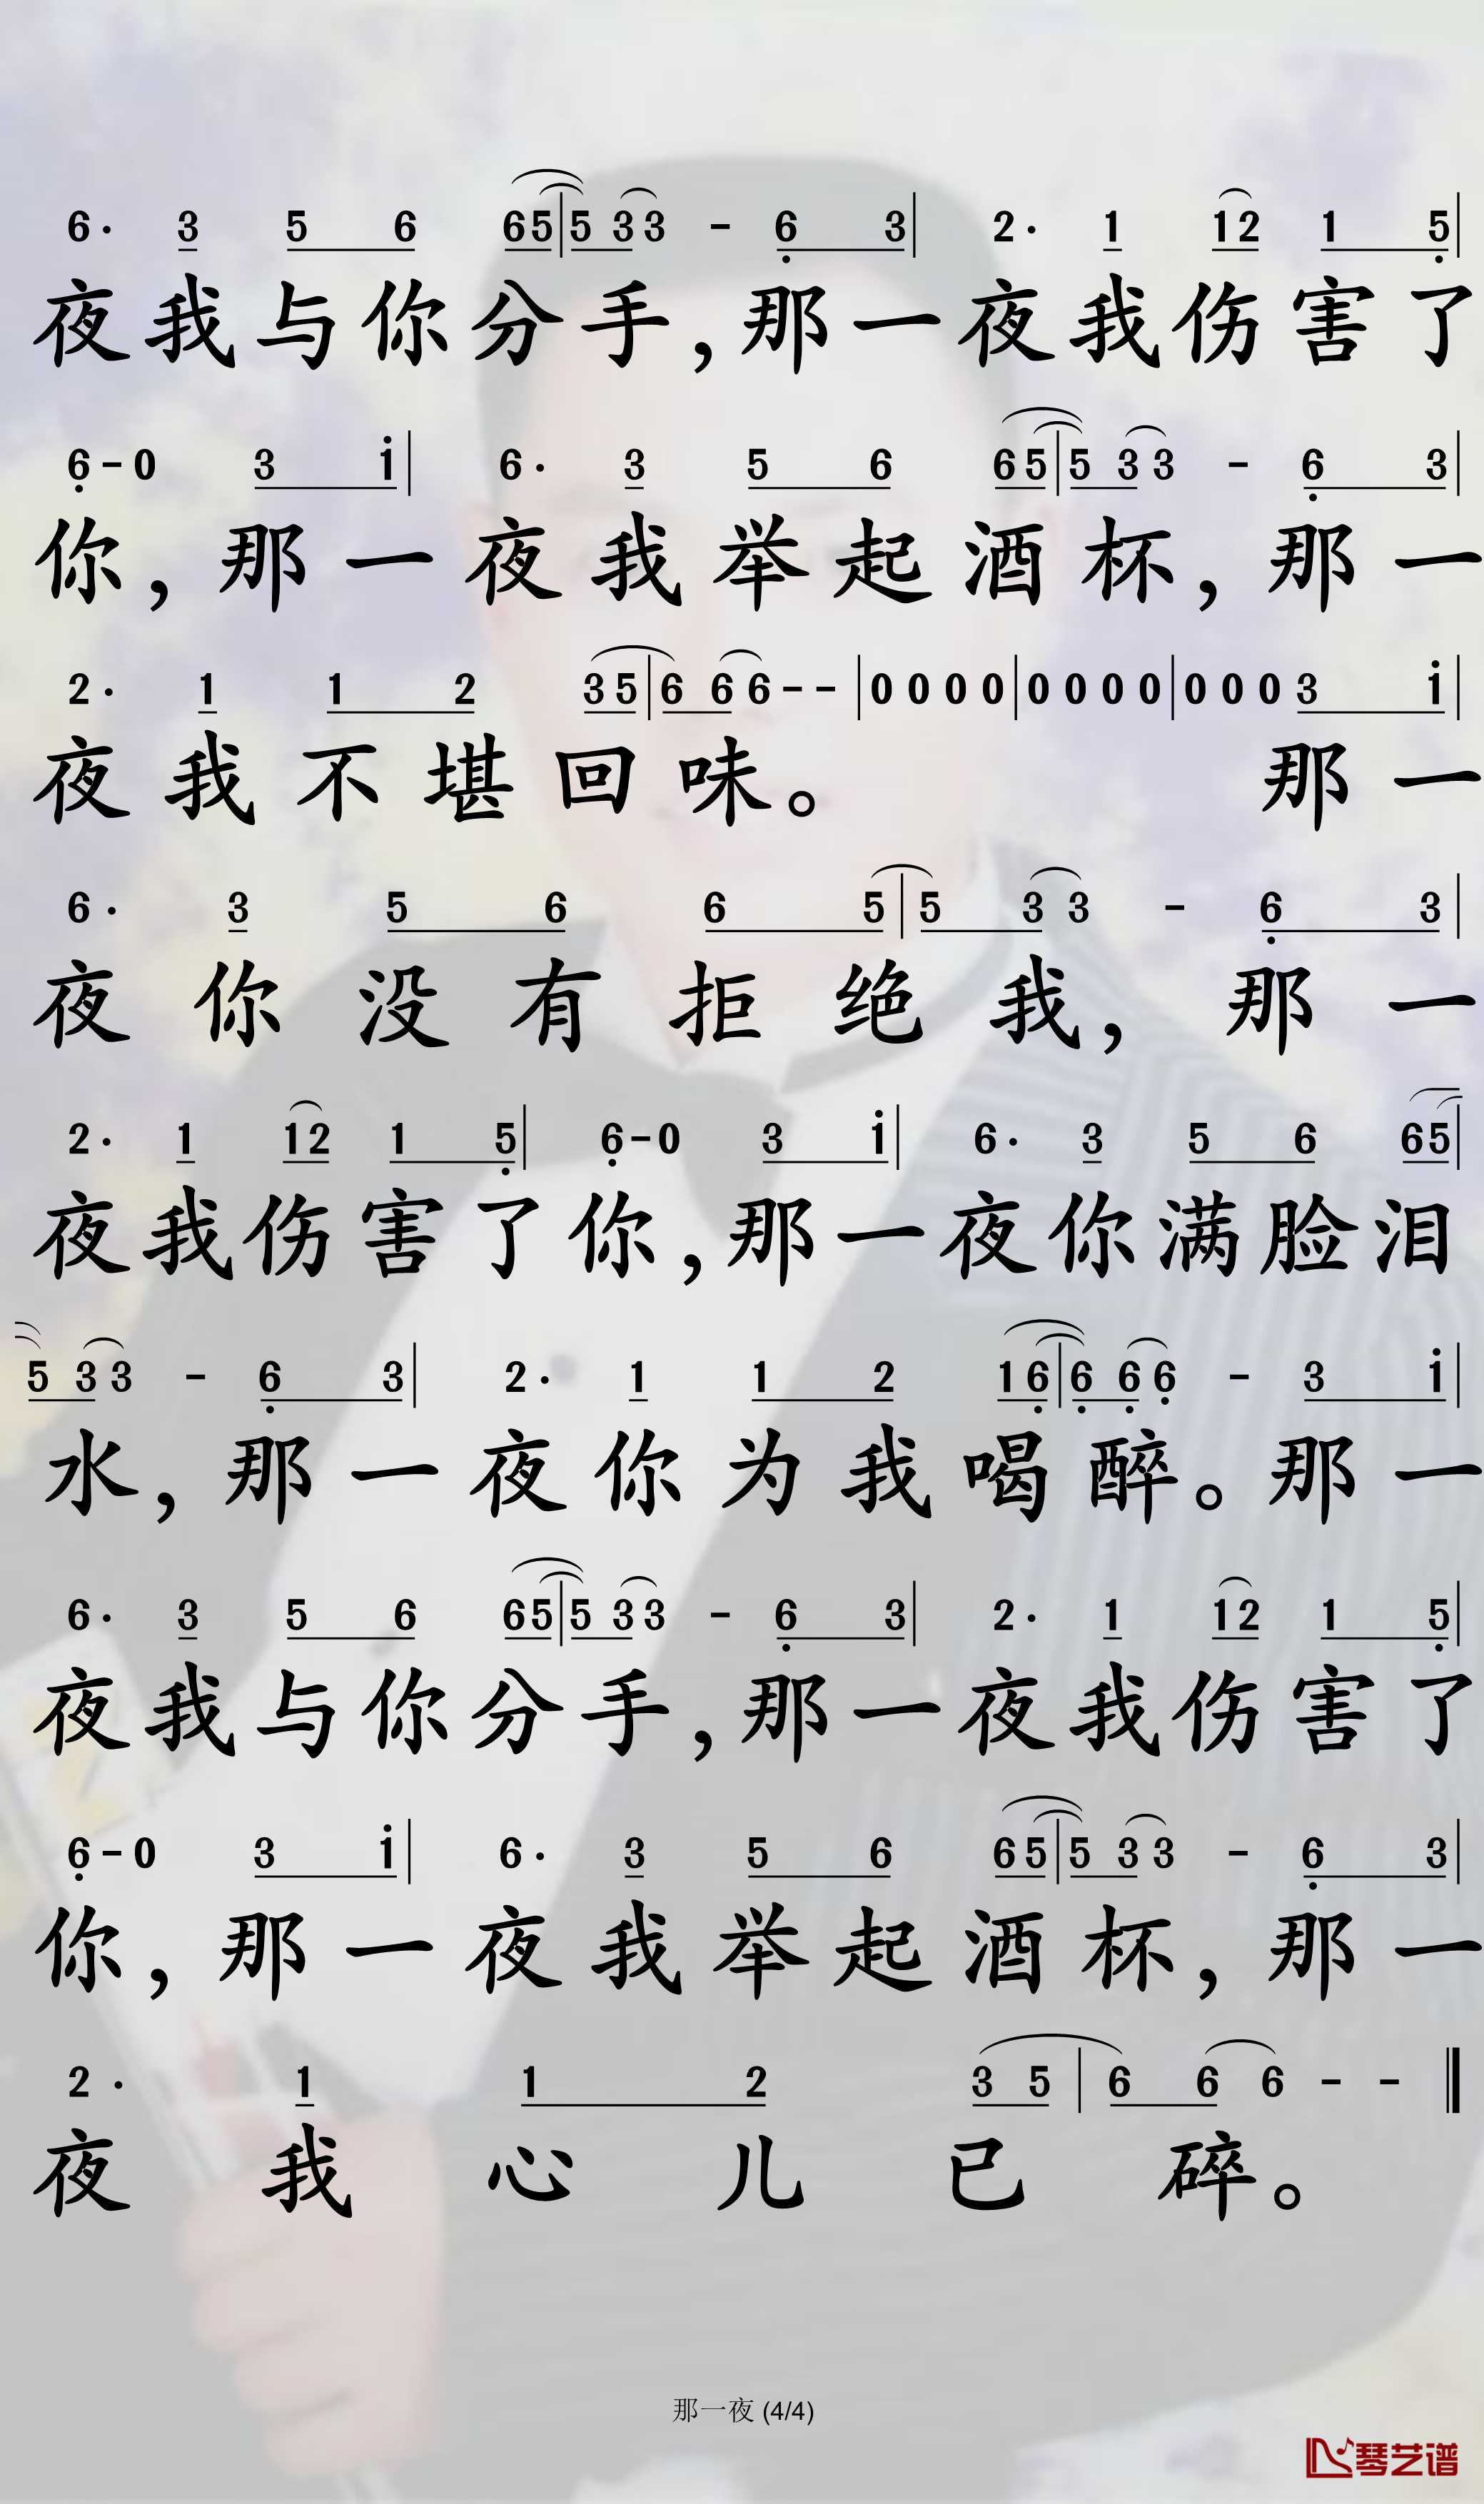 6· 3 5 6 65|5 33 - 6 3| 2· 1 12 1 5|
夜我与你分手,那一夜我伤害了
6-0 3 i| 6· 3 5 6 65|5 33 - 6 3|
你,那一夜我举起酒杯,那一
2· 1 1 2 35|6 66-- |0000|0000|0003 i|
夜我不堪回味。 那一
6· 3 5 6 6 5|5 33 - 6 3|
夜你没有拒绝我,那一
2· 1 12 1 5| 6-0 3 i| 6· 3 5 6 65|
夜我伤害了你,那一夜你满脸泪
5 33 - 6 3| 2· 1 1 2 16|6 66 - 3 i|
水,那一夜你为我喝醉。那一
6· 3 5 6 65|5 33 - 6 3| 2· 1 12 1 5|
夜我与你分手,那一夜我伤害了
6-0 3 i| 6· 3 5 6 65|5 33 - 6 3|
你,那一夜我举起酒杯,那一
2· 1 1 2 3 5|6 6 6 - - ‖
夜我心儿已碎。
那一夜 (4/4)
琴艺谱